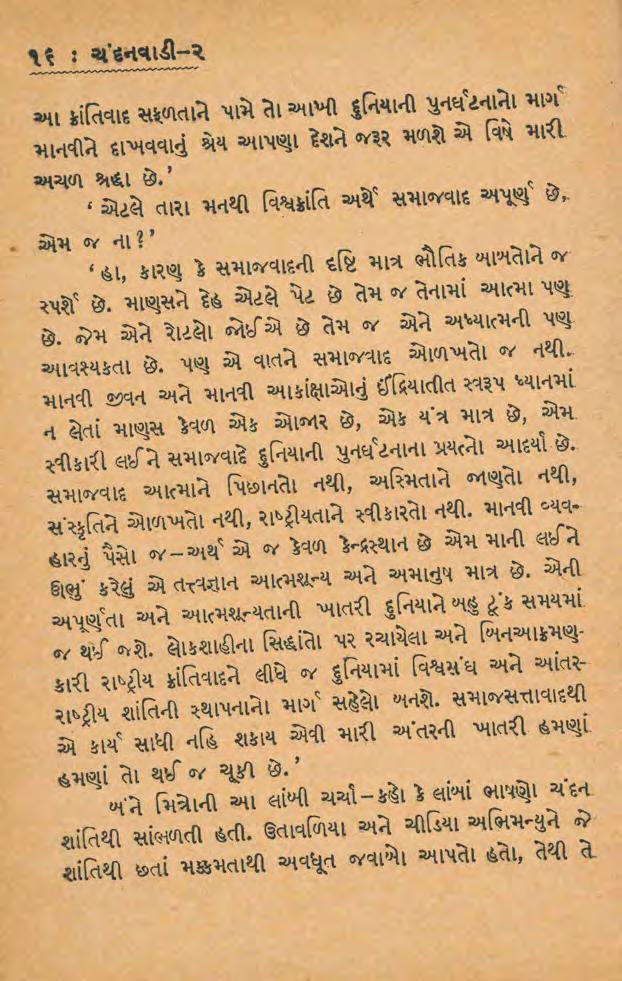 ૧૬ : ચંદનવાડી–૨
આ ક્રાંતિવાદ સફળતાને પામે તો આખી દુનિયાની પુનર્ઘટનાનો માર્ગ
માનવીને દાખવવાનું શ્રેય આપણા દેશને જરૂર મળશે એ વિષે મારી
અચળ શ્રદ્ધા છે.’
‘ એટલે તારા મનથી વિશ્વક્રાંતિ અર્થે સમાજવાદ અપૂર્ણ છે,
એમ જ ના ?’
‘હા, કારણ કે સમાજવાદની દૃષ્ટિ માત્ર ભૌતિક બાબતોને જ
સ્પર્શે છે. માણસને દેહ એટલે પેટ છે તેમ જ તેનામાં આત્મા પણ
છે. જેમ એને રોટલો જોઈએ છે તેમ જ એને અધ્યાત્મની પણ
આવશ્યકતા છે. પણ એ વાતને સમાજવાદ ઓળખતો જ નથી.
માનવી જીવન અને માનવી આકાંક્ષાઓનું ઈંદ્રિયાતીત સ્વરૂપ ધ્યાનમાં
ન લેતાં માણસ કેવળ એક ઓજાર છે, એક યંત્ર માત્ર છે, એમ
સ્વીકારી લઈને સમાજવાદે દુનિયાની પુનર્ઘટનાના પ્રયત્નો આદર્યા છે.
સમાજવાદ આત્માને પિછાનતો નથી, અસ્મિતાને જાણતો નથી,
સંસ્કૃતિને ઓળખતો નથી, રાષ્ટ્રીયતાને સ્વીકારતો નથી. માનવી વ્યવ-
હારનું પૈસો જ–અર્થ એ જ કેવળ કેન્દ્રસ્થાન છે એમ માની લઈને
ઊભું કરેલું એ તત્ત્વજ્ઞાન આત્મશૂન્ય અને અમાનુષ માત્ર છે. એની
અપૂર્ણતા અને આત્મશૂન્યતાની ખાતરી દુનિયાને બહુ ટૂંક સમયમાં
જ થઈ જશે. લોકશાહીના સિદ્ધાંતો પર રચાયેલા અને બિનઆક્રમણ-
કારી રાષ્ટ્રીય ક્રાંતિવાદને લીધે જ દુનિયામાં વિશ્વસંઘ અને આંતર-
રાષ્ટ્રીય શાંતિની સ્થાપનાનો માર્ગ સહેલો બનશે. સમાજસત્તાવાદથી
એ કાર્ય સાધી નહિ શકાય એવી મારી અંતરની ખાતરી હમણાં
હમણાં તો થઈ જ ચૂકી છે.’
બંને મિત્રોની આ લાંબી ચર્ચા–કહો કે લાંબાં ભાષણો ચંદન
શાંતિથી સાંભળતી હતી. ઉતાવળિયા અને ચીડિયા અભિમન્યુને જે
શાંતિથી છતાં મક્કમતાથી અવધૂત જવાબો આપતો હતો, તેથી તે